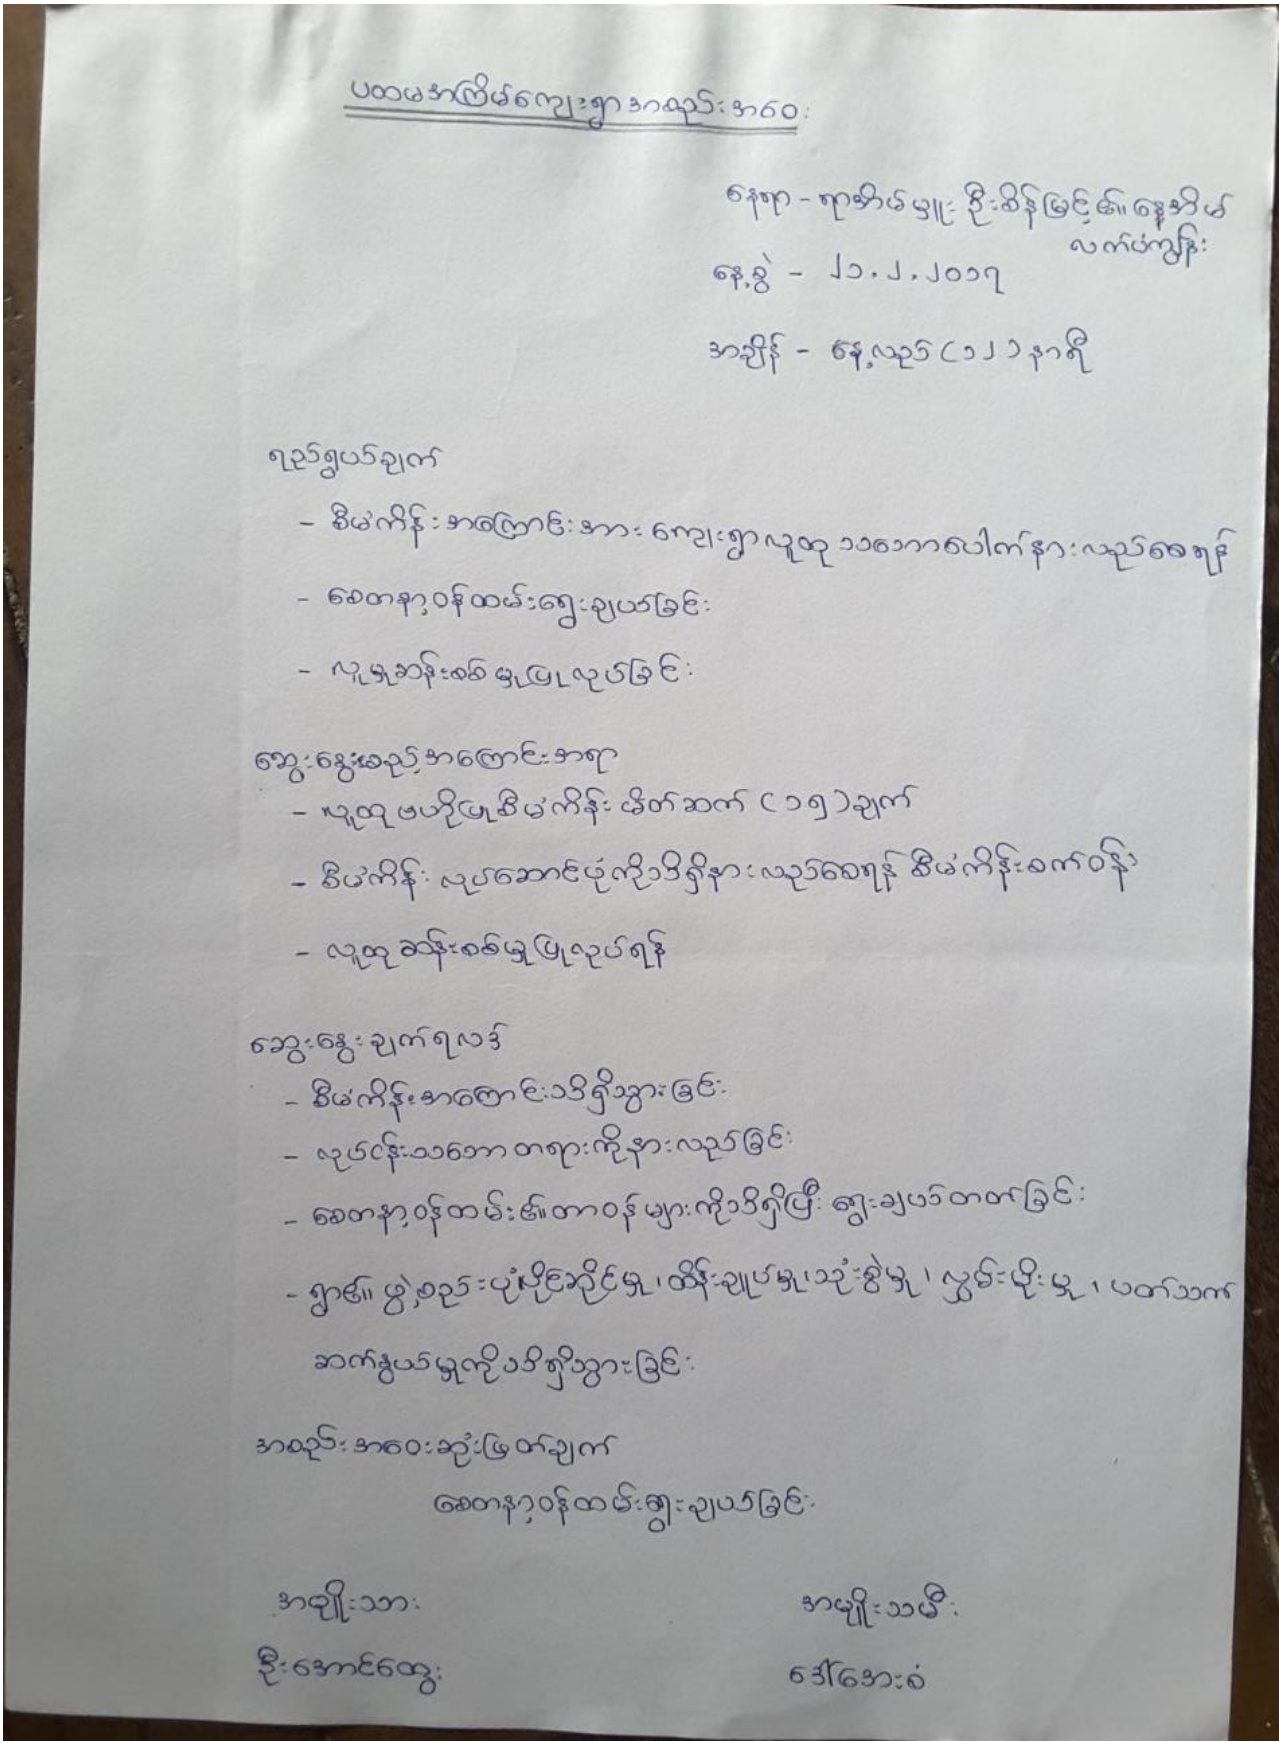 ပထမအကြိမ်ကျေးရွာအစည်းအဝေး
နေရာ - ရာအိမ်မှူး ဦးစိန်မြင့်၏နေအိမ်
လက်ပံကျွန်း
နေ့စွဲ - ၂၁.၂.၂၀၁၇
အချိန် - နေ့လည် (၁၂) နာရီ
ရည်ရွယ်ချက်
- စီမံကိန်းအကြောင်းအား ကျေးရွာလူထုသဘောပေါက်နားလည်စေရန်
- စေတနာ့ဝန်ထမ်းရွေးချယ်ခြင်း
- လူမှုဆန်းစစ်မှုပြုလုပ်ခြင်း
ဆွေးနွေးမည့်အကြောင်းအရာ
- လူထုဗဟိုပြုစီမံကိန်း မိတ်ဆက် (၁၅) ချက်
- စီမံကိန်း လုပ်ဆောင်ပုံကိုသိရှိနားလည်စေရန် စီမံကိန်းစက်ဝန်း
- လူထုဆန်းစစ်မှုပြုလုပ်ရန်
ဆွေးနွေးချက်ရလဒ်
- စီမံကိန်းအကြောင်းသိရှိသွားခြင်း
- လုပ်ငန်းသဘောတရားကိုနားလည်ခြင်း
- စေတနာ့ဝန်ထမ်း၏တာဝန်များကိုသိရှိပြီး ရွေးချယ်တတ်ခြင်း
- ရွာ၏ ဖွဲ့စည်းပုံပိုင်ဆိုင်မှု၊ ထိန်းချုပ်မှု၊ သုံးစွဲမှု၊ လွှမ်းမိုးမှု၊ ပတ်သက်
ဆက်နွယ်မှုကိုသိရှိသွားခြင်း
အစည်းအဝေးဆုံးဖြတ်ချက်
စေတနာ့ဝန်ထမ်းရွေးချယ်ခြင်း
အမျိုးသား အမျိုးသမီး
ဦးအောင်ထွေး ဒေါ်အေးစံ